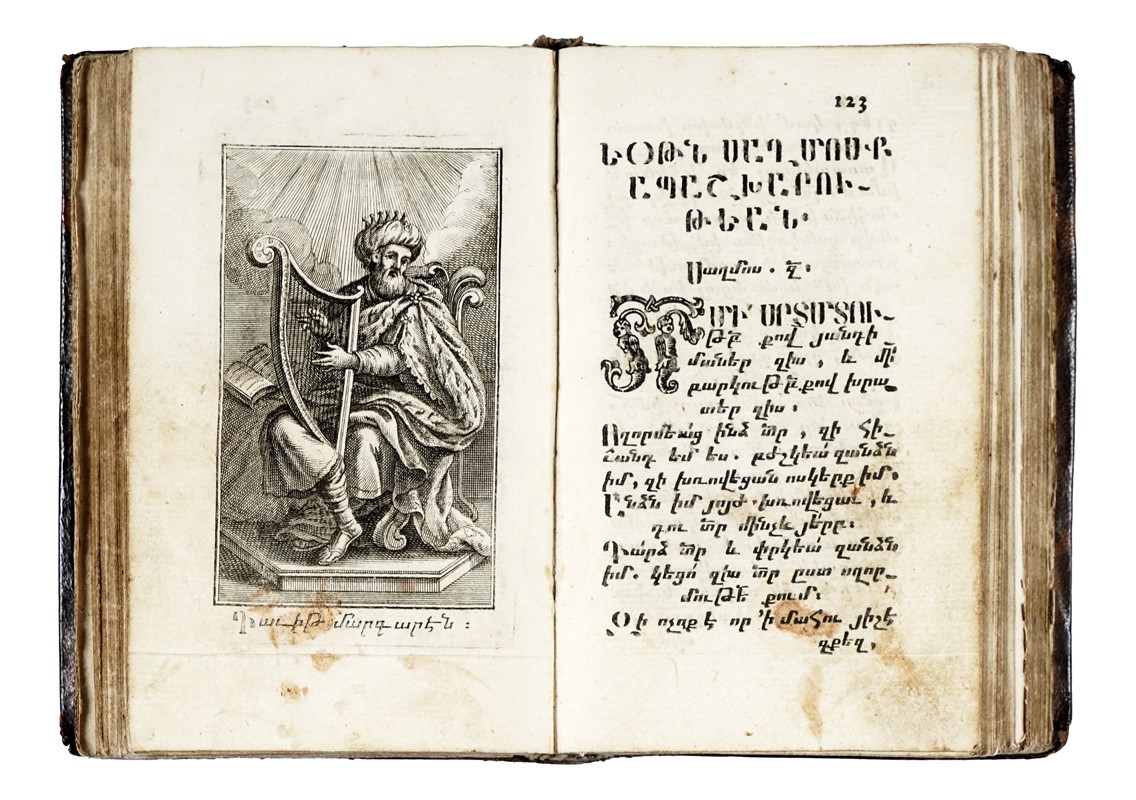 Դաւիթ մարգարէն :
123
ԵՕԹՆ ՍԱՂՄՈՍՔ
ԱՊԱՇԽԱՐՈՒ֊
ԹԵԱՆ։
Սաղմոս . զ̅ ։
ՏՐ ՄԻ՛ ՍՐՏՄՏՈՒ֊
Թբ̅ քով յանդի֊
մաներ զիս , և մի՛
բարկուԹբ̅ քով խրա֊
տեր զիս ։
Ողորմեա՛ց ինձ տր̅ , զի հի֊
ւանդ եմ ես . բժշկեա՛ զանձն
իմ , զի խռովեցան ոսկերք իմ ։
Անձն իմ յոյժ խռովեցաւ , և
դու տր̅ մինչև յե՛րբ ։
Դա՛րձ տր̅ և փրկեա՛ զանձն
իմ . կեցո՛ զիս տր̅ ըստ ողոր֊
մուԹե̅ քում ։
Զի ոչ ոք է որ ՚ի մահու յիշէ
զքեզ ,